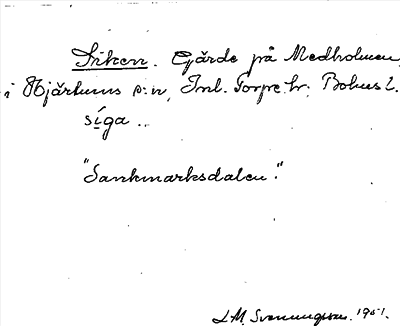 Siken. Gärde på Medholmen,
i Hjärtums s:n, Inl. Torpe hr. Bohus l.
síga ..
"Sankmarksdalen".
L.M. Svenungsson. 1951.